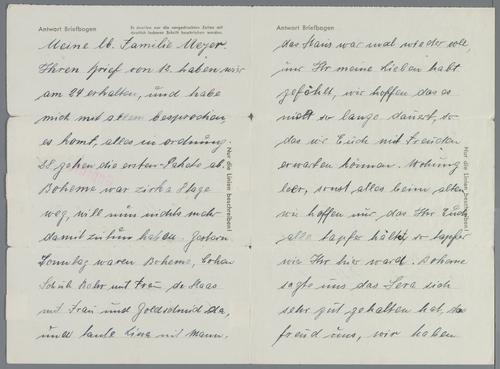 Antwort Briefbogen
Es dürfen nur die vorgedruckten Zeilen mit
deutlich lesbarer Schrift beschrieben werden.
Meine lb. Familie Meyer.
Ihren brief von 13. haben wir
am 24 erhalten, und habe
mich mit allem besprochen
es komt, alles in ordnung.
28 gehen die ersten Pakete ab.
Boheme war zirka 8 tage
weg, will nun nichts mehr
damit zu tun haben. Gestern
Sonntag waren Boheme,
Bohr mit Frau, de Haas
mit Frau und Goldschmid da,
unser tante Lina mit Mann.
Nur die Linien beschreiben!
Antwort Briefbogen
das Haus war mal wieder voll,
nur Ihr meine Lieben habt
gefählt, wir hoffen das es
nicht so lange dauert, so
das wir Euch mit Freuden
erwarten können. Wohnung
leer, sonst alles beim alten
wir hoffen nur, das Ihr Euch
alle tapfer hältet, so tapfer
wie Ihr hier ward. Boheme
sagte uns das Sera sich
sehr gut gehalten hat, das
freud uns, wir haben
Nur die Linien beschreiben!